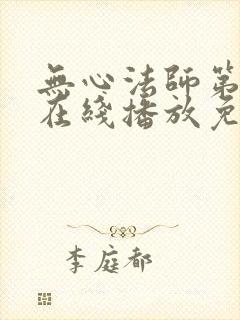 無心法師第
在綫播放免
李庭都